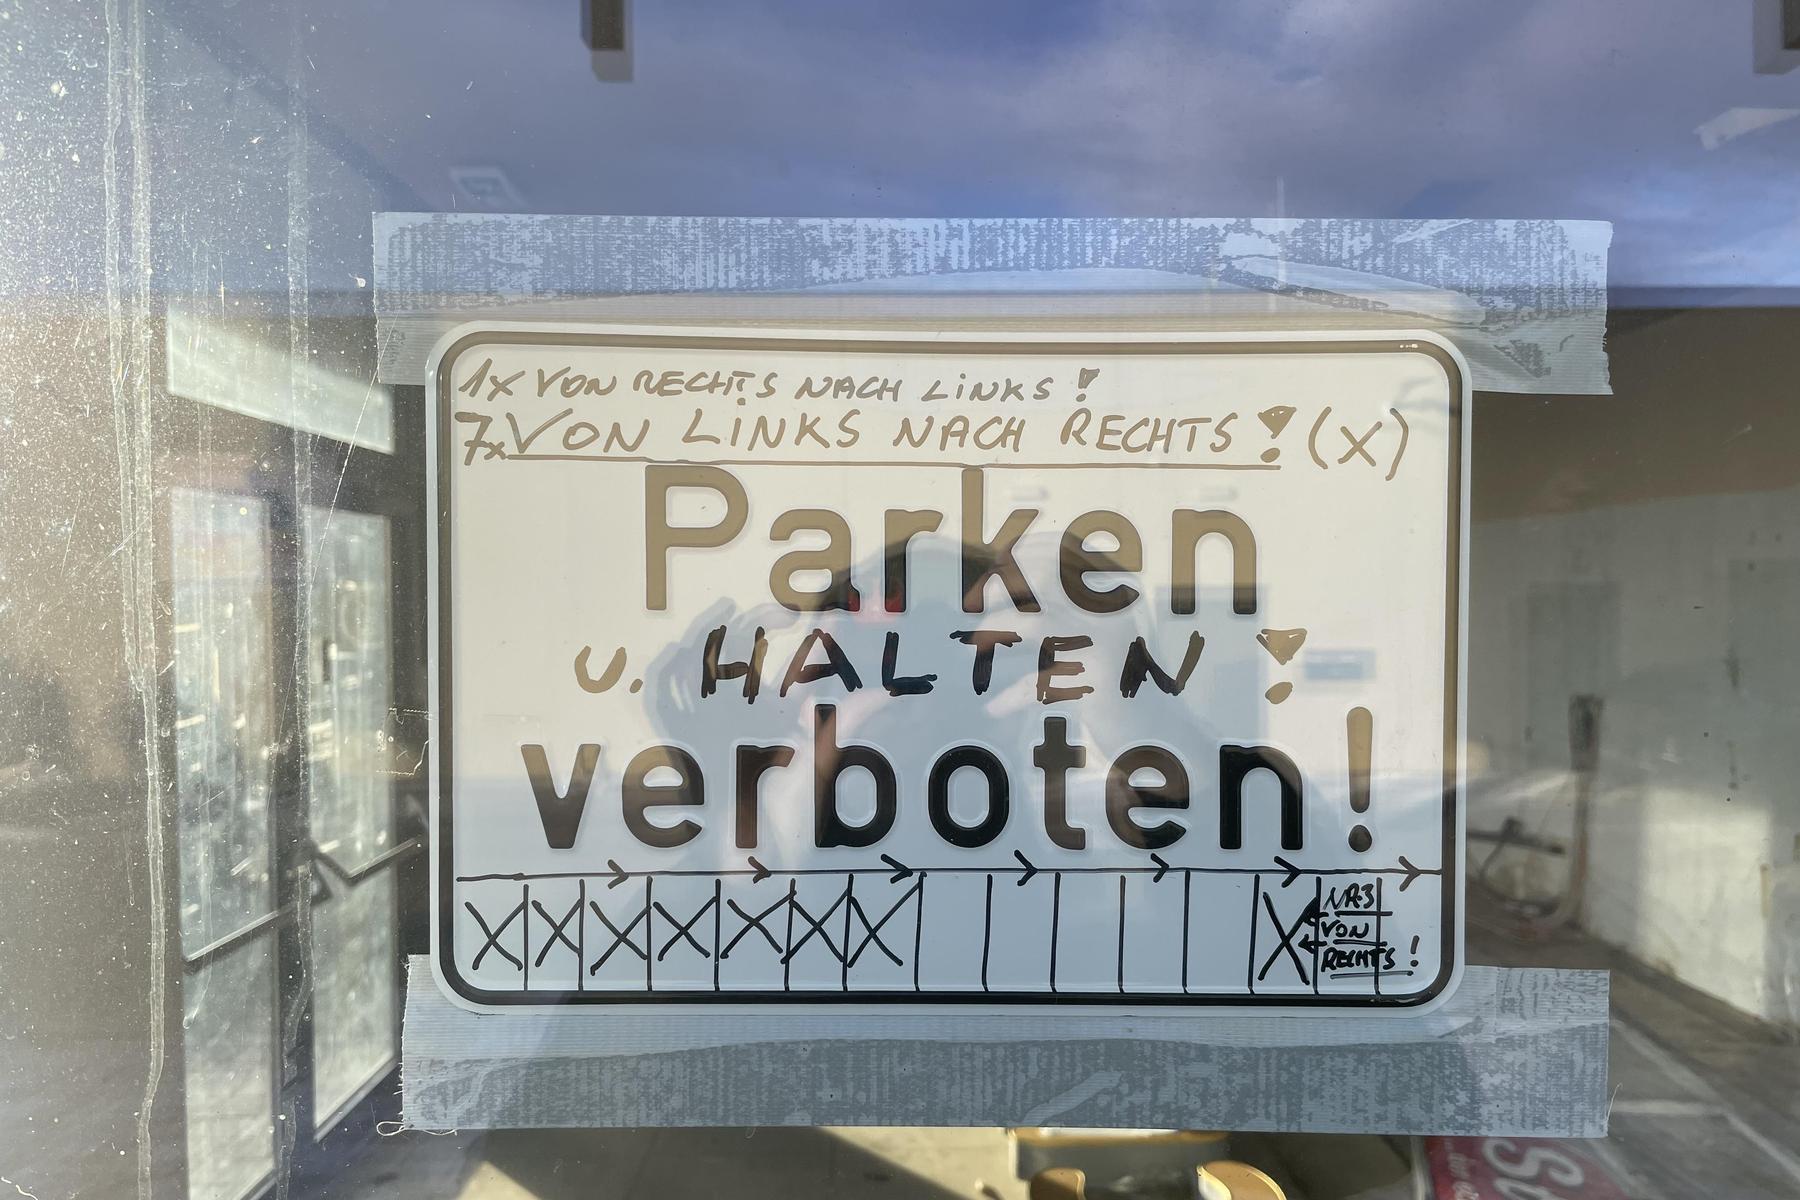 1x VON RECHTS NACH LiNKS!
7x VON LiNKS NACH RECHTS! (X)
Parken
u. HALTEN!
verboten!
NR.3
VON
RECHTS!